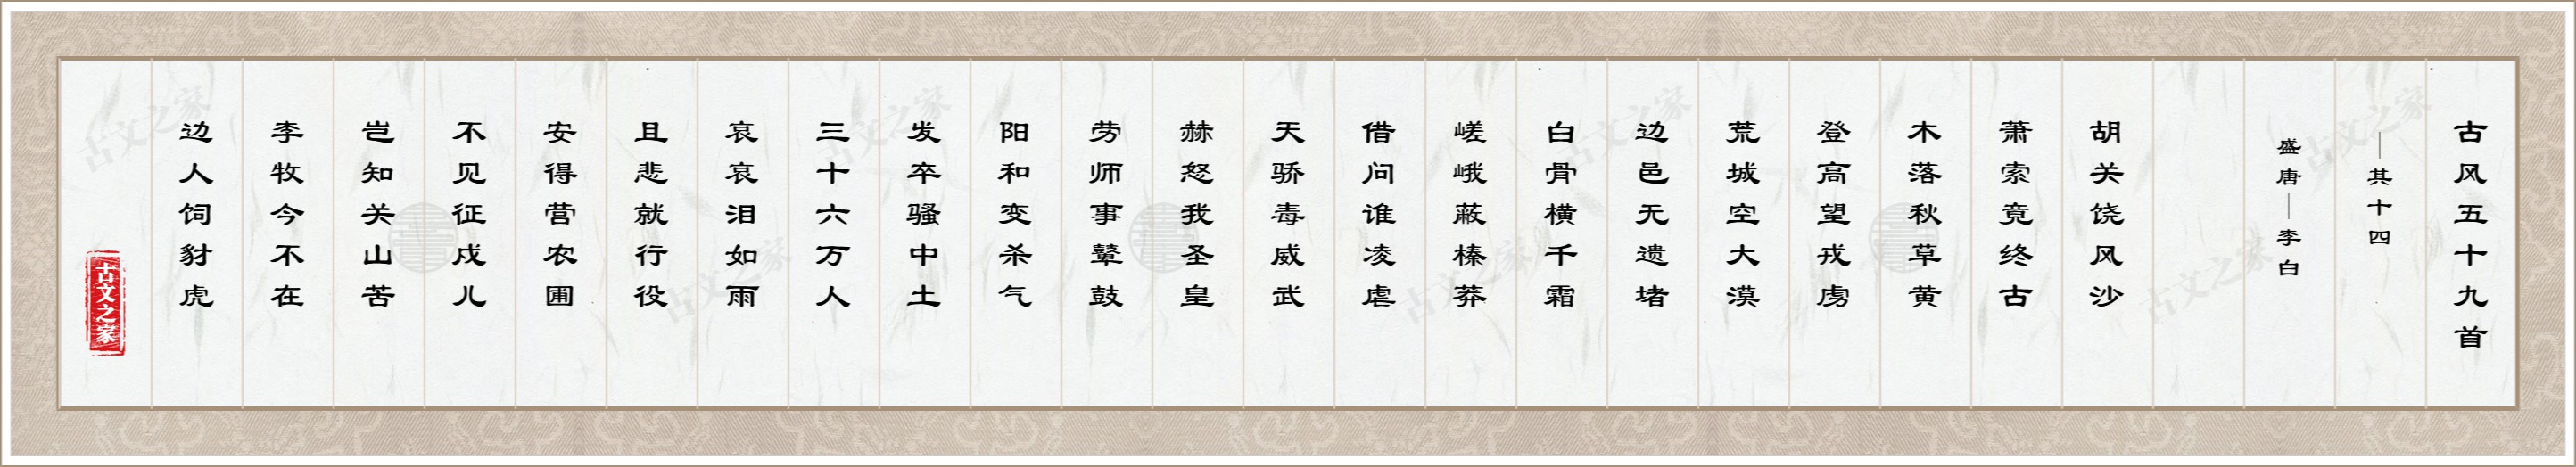 古风五十九首
—其十四
盛唐—李白
胡关饶风沙
萧索竟终古
木落秋草黄
登高望戎虏
荒城空大漠
边邑无遗堵
白骨横千霜
嵯峨蔽榛莽
借问谁凌虐
天骄毒威武
赫怒我圣皇
劳师事鼙鼓
阳和变杀气
发卒骚中土
三十六万人
哀哀泪如雨
且悲就行役
安得营农圃
不见征戍儿
岂知关山苦
李牧今不在
边人饲豺虎
古文之家